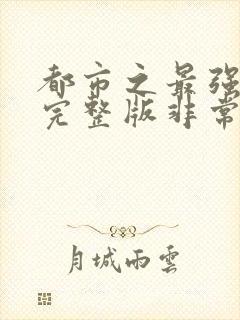 都市之最强
完整版非常
月城雨雲